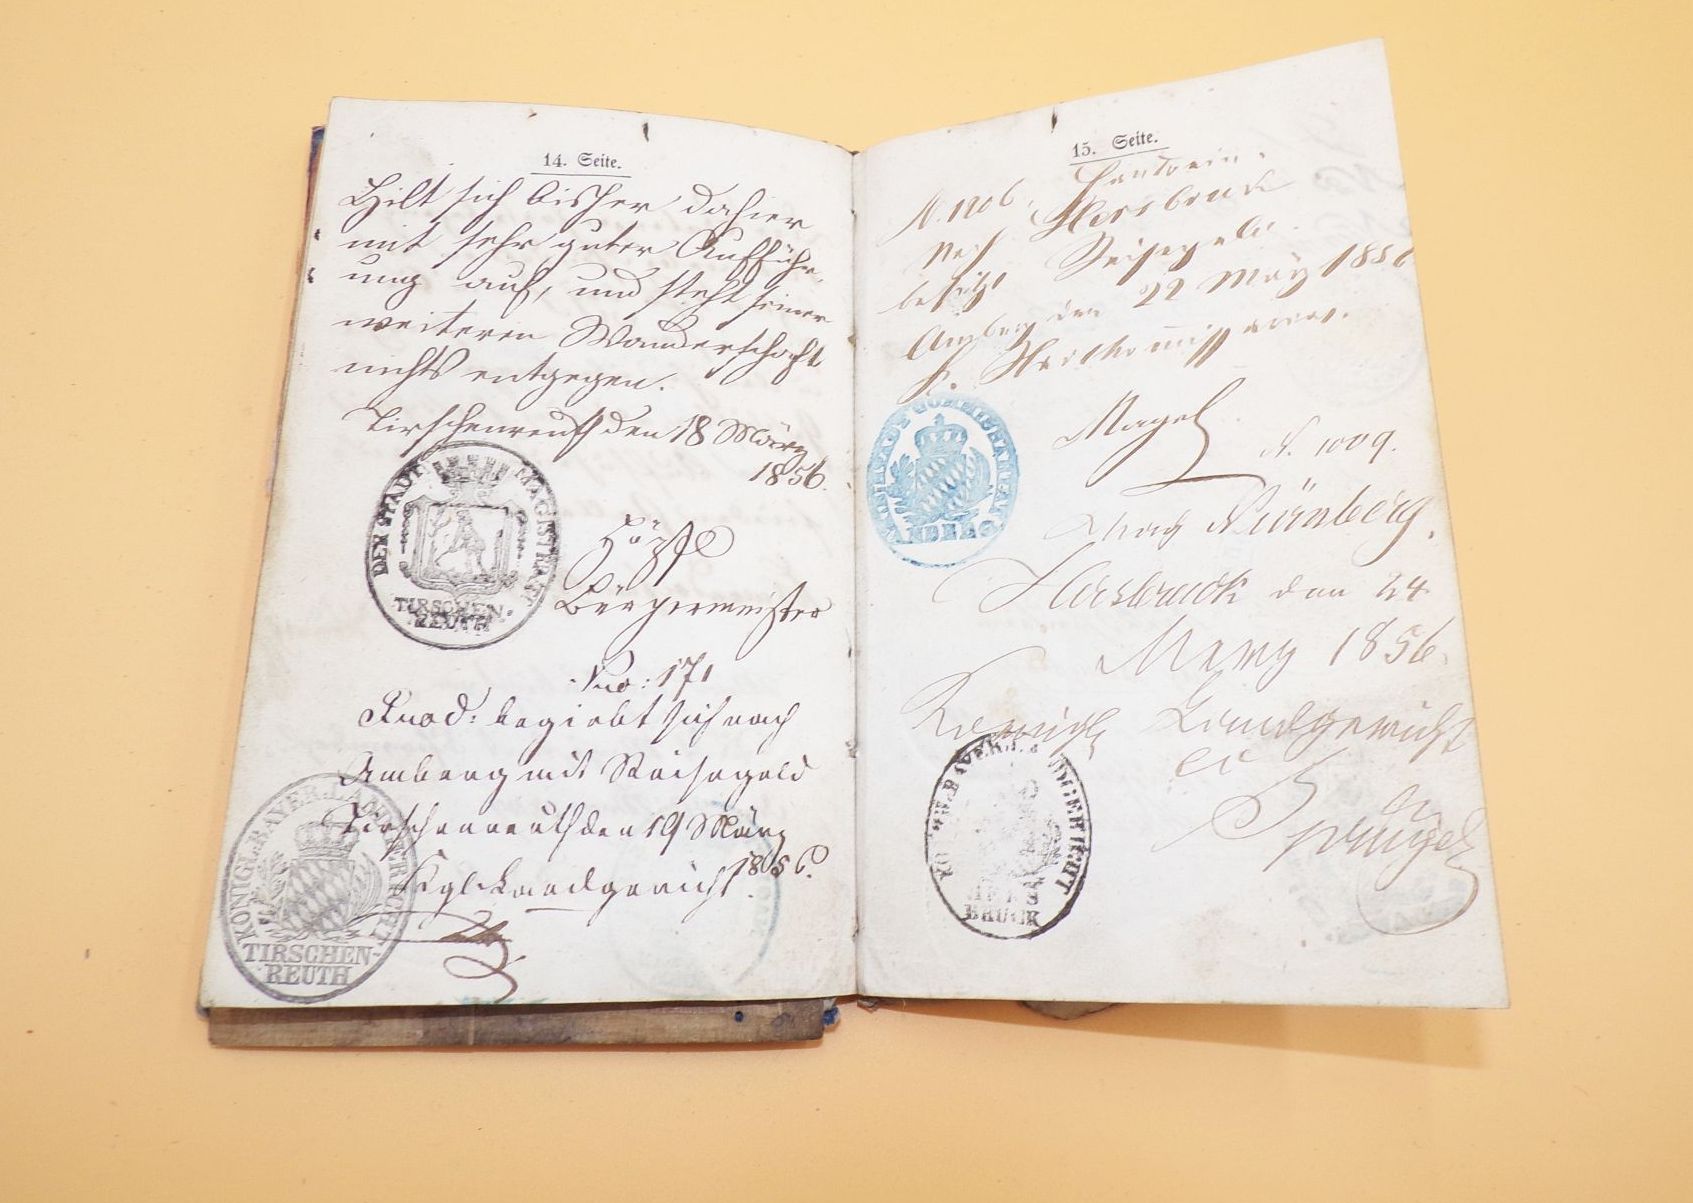 14. Seite.
Hilt sich bisher dahier
mit sehr guter Aufführ-
ung auf, und steht seiner
weiteren Wanderschaft
nichts entgegen.
Tirschenreuth den 18 März
1856.
DER STADT MAGISTRAT
TIRSCHEN-
REUTH
Bürgermeister
Nro: 171
begiebt sich nach
Amberg mit Reisegeld
Tirschenreuth den 19 März
1856.
Kgl. Landgericht.
KÖNIGL. BAYER. LANDGERICHT
TIRSCHEN-
REUTH
15. Seite.
N. 1206.
Hersbruck
besitzt Reisegeld.
Amberg den 22 März 1856
AMBERG
Nagel
N. 1009.
Nach Nürnberg.
Hersbruck den 24
März 1856.
Königl. Landgericht
LANDGERICHT
HERS
BRUCK